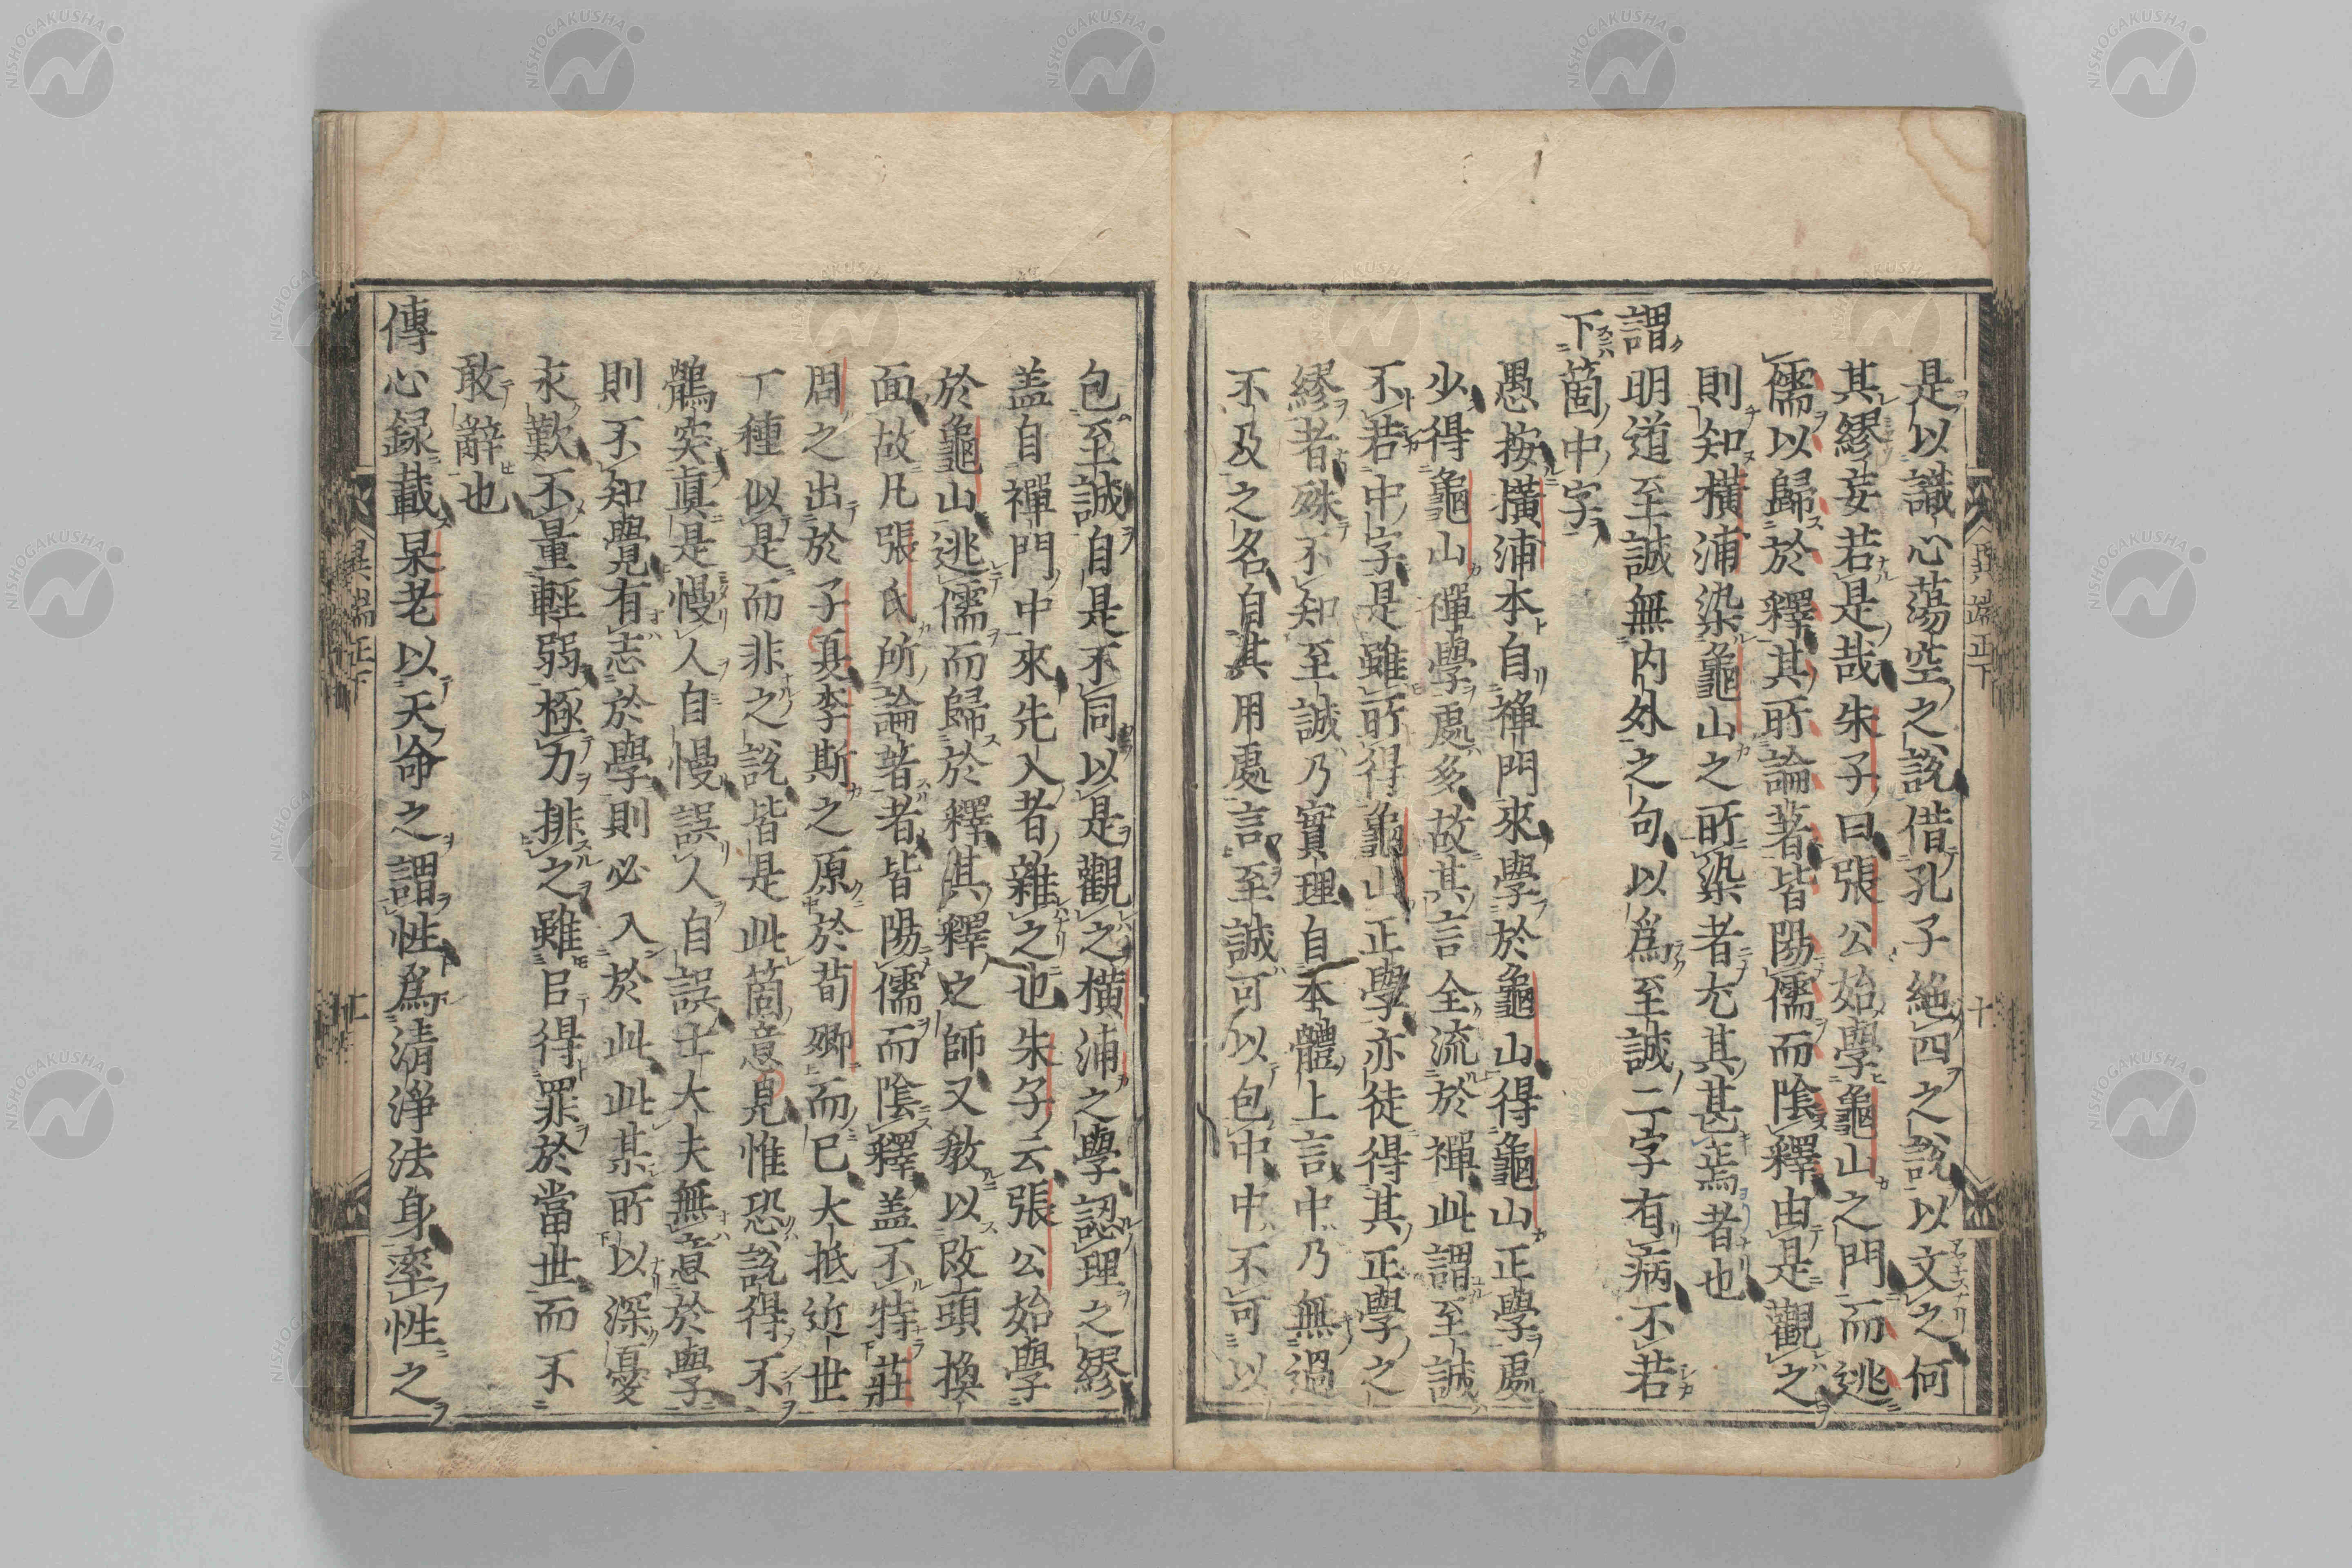 是以識心蕩空之說借孔子絶四之說以文之何
其繆妄若是哉朱子曰張公始學龜山之門而逃
儒以歸於釋其所論著皆陽儒而陰釋由是觀之
則知橫浦染龜山之所染者尤其甚焉者也
謂明道至誠無内外之句以爲至誠二字有病不若
下箇中字
愚按橫浦本自禅門來學於龜山得龜山正學處
少得龜山禪學處多故其言全流於禪此謂至誠
不若中字是雖所得龜山正學亦徒得其正學之
繆者殊不知至誠乃實理自本體上言中乃無過
不及之名自其用處言至誠可以包中中不可以
包至誠自是不同以是觀之橫浦之學認理之繆
盖自禪門中來先入者雜之也朱子云張公始學
於龜山逃儒而歸於釋其釋之師又敎以改頭換
面故凡張氏所論著者皆陽儒而陰釋盖不特莊
周之出於子夏李斯之原於荀卿而已大抵近世
一種似是而非之說皆是此箇意見惟恐說得不
鶻突眞是慢人自慢誤人自誤士大夫無意於學
則不知覺有志於學則必入於此此某所以深憂
永歎不量輕弱極力排之雖㠯得罪於當世而不
敢辭也
傳心録載杲老以天命之謂性爲清淨法身率性之
異端正下
十